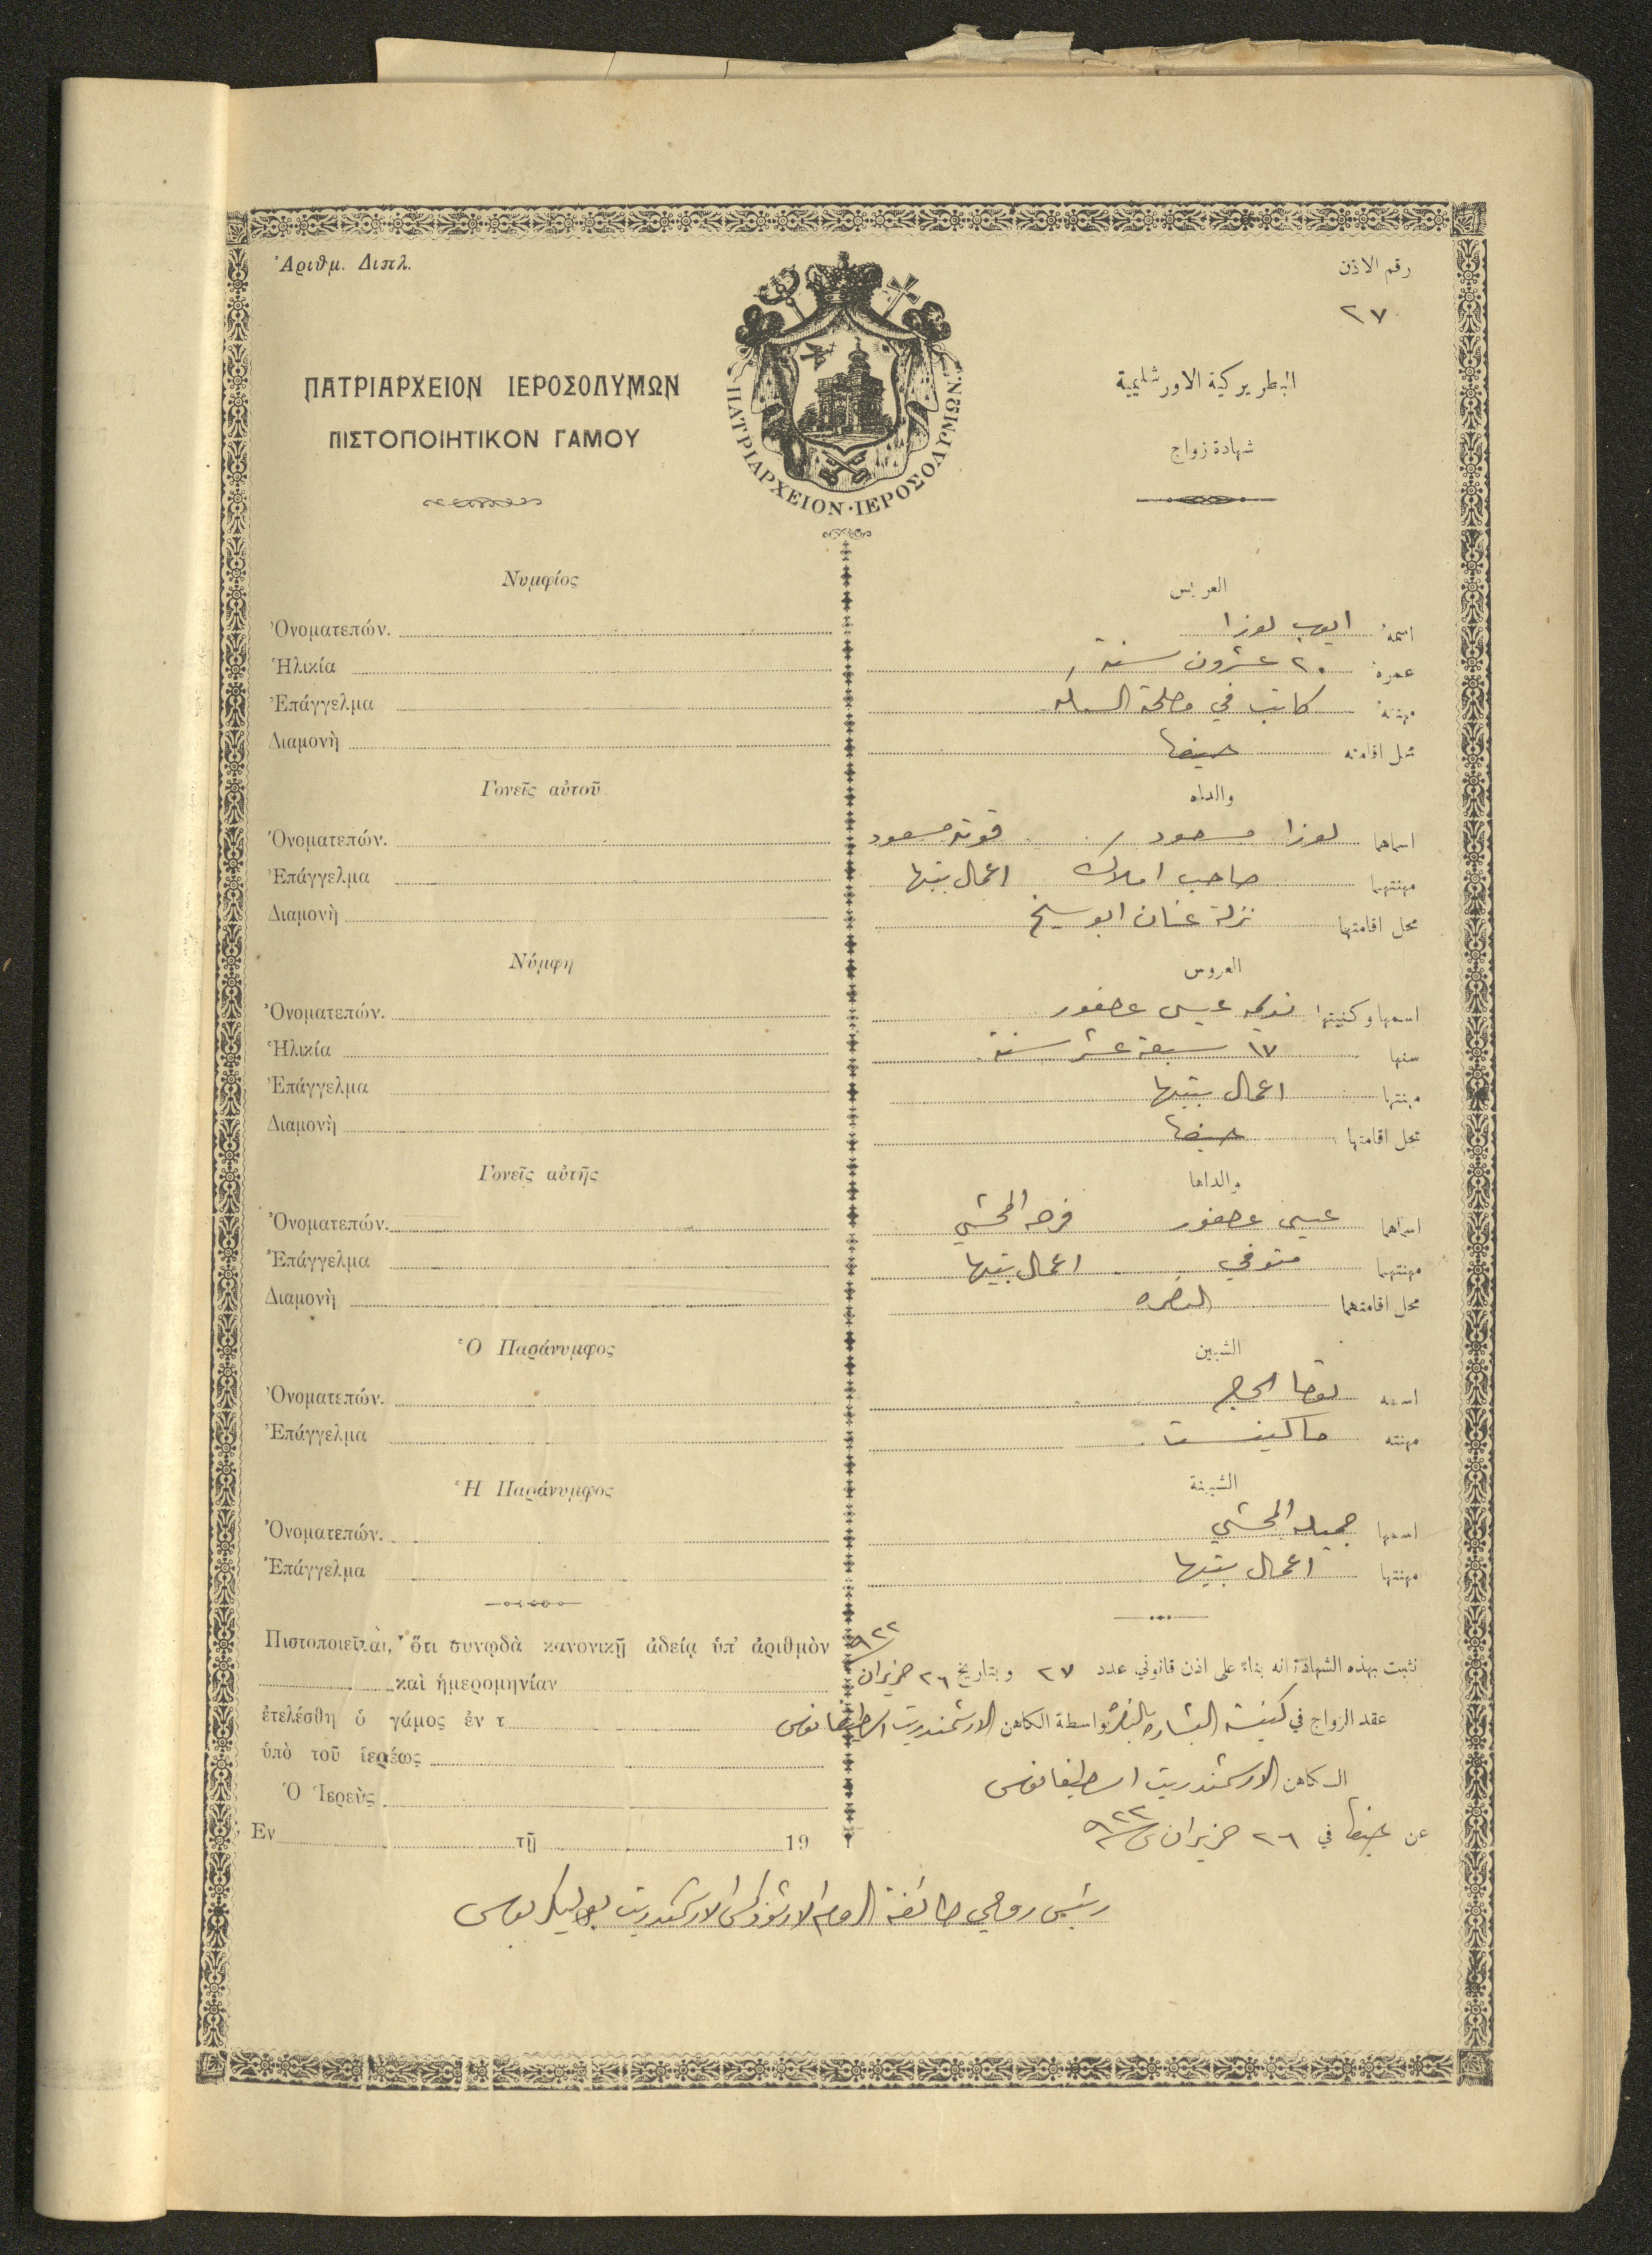 Ἀριθμ. Διπλ.
رقم الاذن
٢٧
ΠΑΤΡΙΑΡΧΕΙΟΝ ΙΕΡΟΣΟΛΥΜΩΝ
ΠΙΣΤΟΠΟΙΗΤΙΚΟΝ ΓΑΜΟΥ
ΠΑΤΡΙΑΡΧΕΙΟΝ·ΙΕΡΟΣΟΛΥΜΩΝ
البطريركية الاورشليمية
شهادة زواج
Νυμφίος
Ὀνοματεπών.
Ἡλικία
Ἐπάγγελμα
Διαμονὴ
Γονεῖς αὐτοῦ
Ὀνοματεπών.
Ἐπάγγελμα
Διαμονὴ
Νύμφη
Ὀνοματεπών.
Ἡλικία
Ἐπάγγελμα
Διαμονὴ
Γονεῖς αὐτῆς
Ὀνοματεπών.
Ἐπάγγελμα
Διαμονὴ
Ὁ Παράνυμφος
Ὀνοματεπών.
Ἐπάγγελμα
Ἡ Παράνυμφος
Ὀνοματεπών.
Ἐπάγγελμα
Πιστοποιεῖται, ὅτι συνῳδὰ κανονικῇ ἀδείᾳ ὑπ' ἀριθμὸν
καὶ ἡμερομηνίαν
ἐτελέσθη ὁ γάμος ἐν τ
ὑπὸ τοῦ ἱερέως
Ὁ Ἱερεὺς
Εν τῇ 19
العريس
اسمه ايوب لوزا
عمره ٢٠ عشرون سنة
مهنته كاتب في مصلحة السكه
محل اقامته حيفا
والداه
اسماهما لوزا مسعود مسعود
مهنتهما صاحب املاك اعمال بيتها
محل اقامتهما نزلة
العروس
اسمها وكنيتها نديمه عيسى عصفور
سنها ١٧ سبعة عشر سنة
مهنتها اعمال بيتها
محل اقامتها حيفا
والداها
اسماهما عيسى عصفور فرحه المحشي
مهنتهما متوفي اعمال بيتها
محل اقامتهما الناصره
الشبين
اسمه لوقا الحاج
مهنته ماكينست
الشبينة
اسمها جميله المحشي
مهنتها اعمال بيتها
نثبت بهذه الشهادة انه بناءً على اذن قانوني عدد ٢٧ وبتاريخ ٢٦ حزيران ٩٢٢
عقد الزواج في كنيسة البشاره بالناصرة بواسطة الكاهن الارشمندريت اسطيفانوس
الكاهن الارشمندريت اسطيفانوس
عن حيفا في ٢٦ حزيران سنة ٩٢٢
رئيس روحي طائفة الروم الارثوذكس الارشمندريت